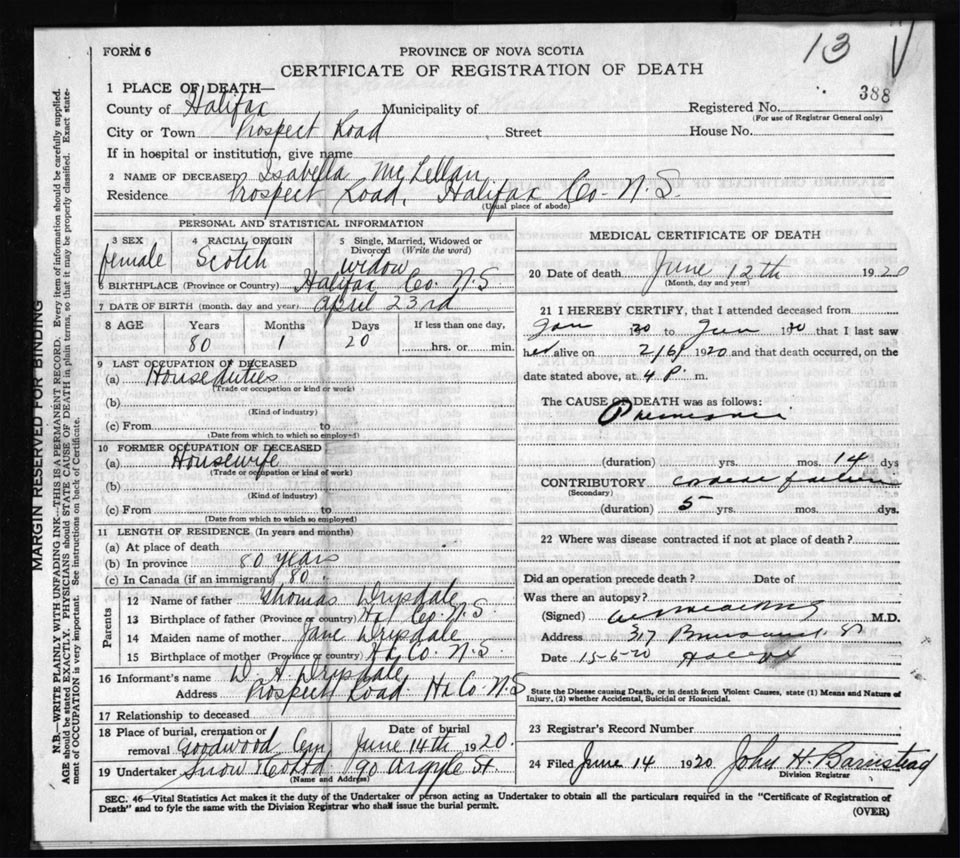 13
FORM 6
PROVINCE OF NOVA SCOTIA
CERTIFICATE OF REGISTRATION OF DEATH
388
1 PLACE OF DEATH—
County of Halifax Municipality of Registered No.
(For use of Registrar General only)
City or Town Prospect Road Street House No.
If in hospital or institution, give name
2 NAME OF DECEASED Isabella McLellan
Residence Prospect Road, Halifax Co. N.S.
(Usual place of abode)
PERSONAL AND STATISTICAL INFORMATION
3 SEX female
4 RACIAL ORIGIN Scotch
5 Single, Married, Widowed or Divorced (Write the word) widow
6 BIRTHPLACE (Province or Country) Halifax Co. N.S.
7 DATE OF BIRTH (month, day and year) April 23rd
8 AGE Years Months Days If less than one day,
80 1 20 hrs. or min.
9 LAST OCCUPATION OF DECEASED
(a) House duties
(Trade or occupation or kind of work)
(b)
(Kind of industry)
(c) From to
(Date from which to which so employed)
10 FORMER OCCUPATION OF DECEASED
(a) Housewife
(Trade or occupation or kind of work)
(b)
(Kind of industry)
(c) From to
(Date from which to which so employed)
11 LENGTH OF RESIDENCE (In years and months)
(a) At place of death
(b) In province 80 years
(c) In Canada (if an immigrant) 80
Parents
12 Name of father Thomas Drysdale
13 Birthplace of father (Province or country) Hx Co. N.S.
14 Maiden name of mother Jane Drysdale
15 Birthplace of mother (Province or country) Hx Co. N.S.
16 Informant's name D. A. Drysdale
Address Prospect Road. Hx Co. N.S
17 Relationship to deceased
18 Place of burial, cremation or removal Goodwood Cem Date of burial June 14th 1920.
19 Undertaker Snow & Co Ltd 90 Argyle St.
(Name and Address)
MEDICAL CERTIFICATE OF DEATH
20 Date of death June 12th 1920
(Month, day and year)
21 I HEREBY CERTIFY, that I attended deceased from
Jan 1920 to Jun 1920 that I last saw
her alive on 2/6/ 1920 and that death occurred, on the
date stated above, at 4 P. m.
The CAUSE OF DEATH was as follows:
Pneumonia
(duration) yrs. mos. 14 dys
CONTRIBUTORY failure
(Secondary)
(duration) 5 yrs. mos. dys.
22 Where was disease contracted if not at place of death?
Did an operation precede death? Date of
Was there an autopsy?
(Signed) M.D.
Address 317 St
Date 15-6-20 Halifax
State the Disease causing Death, or in death from Violent Causes, state (1) Means and Nature of
Injury, (2) whether Accidental, Suicidal or Homicidal.
23 Registrar's Record Number
24 Filed June 14 1920 John H. Barnstead
Division Registrar
SEC. 46—Vital Statistics Act makes it the duty of the Undertaker or person acting as Undertaker to obtain all the particulars required in the "Certificate of Registration of
Death" and to fyle the same with the Division Registrar who shall issue the burial permit.
(OVER)
MARGIN RESERVED FOR BINDING
N.B.—WRITE PLAINLY WITH UNFADING INK—THIS IS A PERMANENT RECORD. Every item of information should be carefully supplied.
AGE should be stated EXACTLY. PHYSICIANS should STATE CAUSE OF DEATH in plain terms, so that it may be properly classified. Exact state-
ment of OCCUPATION is very important. See instructions on back of Certificate.